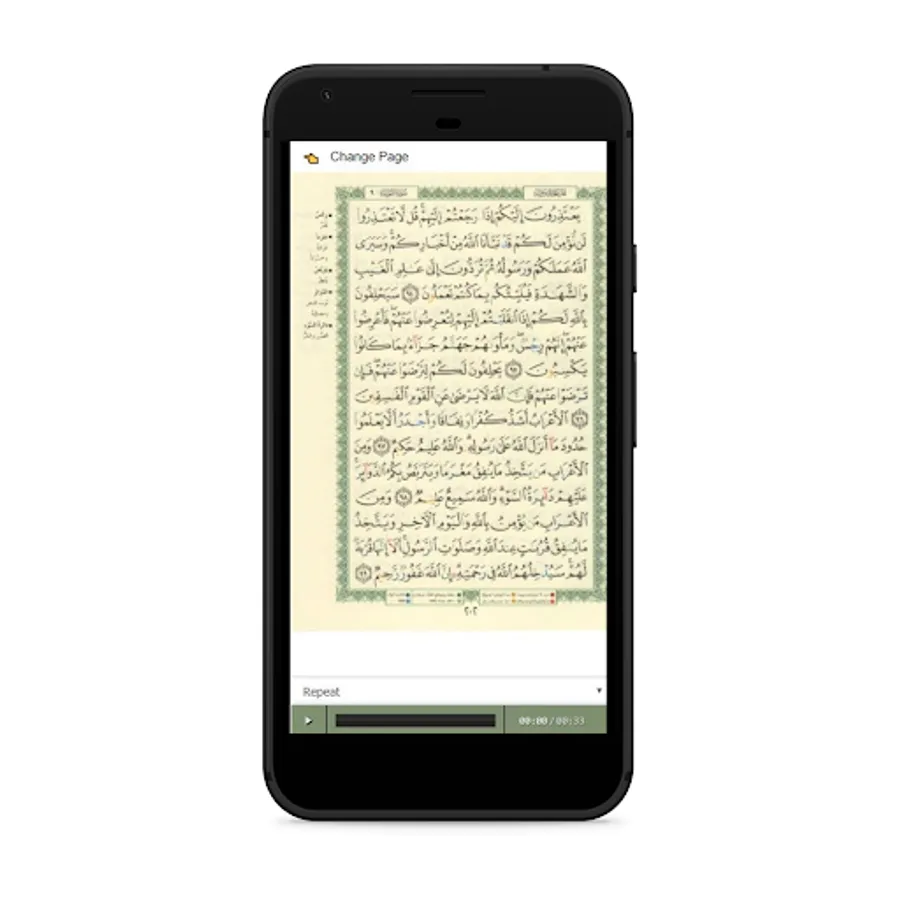 Change Page
يَعْتَذِرُونَ إِلَيْكُمْ إِذَا رَجَعْتُمْ إِلَيْهِمْ قُل لَّا تَعْتَذِرُوا
لَن نُّؤْمِنَ لَكُمْ قَدْ نَبَّأَنَا اللَّهُ مِنْ أَخْبَارِكُمْ وَسَيَرَى
اللَّهُ عَمَلَكُمْ وَرَسُولُهُ ثُمَّ تُرَدُّونَ إِلَى عَالِمِ الْغَيْبِ
وَالشَّهَادَةِ فَيُنَبِّئُكُم بِمَا كُنتُمْ تَعْمَلُونَ ٩٤ سَيَحْلِفُونَ
بِاللَّهِ لَكُمْ إِذَا انقَلَبْتُمْ إِلَيْهِمْ لِتُعْرِضُوا عَنْهُمْ فَأَعْرِضُوا
عَنْهُمْ إِنَّهُمْ رِجْسٌ وَمَأْوَاهُمْ جَهَنَّمُ جَزَاءً بِمَا كَانُوا
يَكْسِبُونَ ٩٥ يَحْلِفُونَ لَكُمْ لِتَرْضَوْا عَنْهُمْ فَإِن
تَرْضَوْا عَنْهُمْ فَإِنَّ اللَّهَ لَا يَرْضَى عَنِ الْقَوْمِ الْفَاسِقِينَ
٩٦ الْأَعْرَابُ أَشَدُّ كُفْرًا وَنِفَاقًا وَأَجْدَرُ أَلَّا يَعْلَمُوا
حُدُودَ مَا أَنزَلَ اللَّهُ عَلَى رَسُولِهِ وَاللَّهُ عَلِيمٌ حَكِيمٌ ٩٧ وَمِنَ
الْأَعْرَابِ مَن يَتَّخِذُ مَا يُنفِقُ مَغْرَمًا وَيَتَرَبَّصُ بِكُمُ الدَّوَائِرَ
عَلَيْهِمْ دَائِرَةُ السَّوْءِ وَاللَّهُ سَمِيعٌ عَلِيمٌ ٩٨ وَمِنَ
الْأَعْرَابِ مَن يُؤْمِنُ بِاللَّهِ وَالْيَوْمِ الْآخِرِ وَيَتَّخِذُ
مَا يُنفِقُ قُرُبَاتٍ عِندَ اللَّهِ وَصَلَوَاتِ الرَّسُولِ أَلَا إِنَّهَا قُرْبَةٌ
لَّهُمْ سَيُدْخِلُهُمُ اللَّهُ فِي رَحْمَتِهِ إِنَّ اللَّهَ غَفُورٌ رَّحِيمٌ ٩٩
٢٠٢
Repeat
00:00/00:33